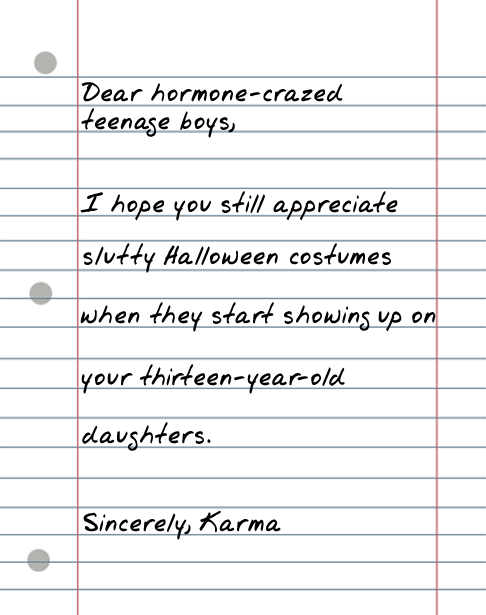 Dear hormone-crazed
teenage boys,
I hope you still appreciate
slutty Halloween costumes
when they start showing up on
your thirteen-year-old
daughters.
Sincerely, Karma